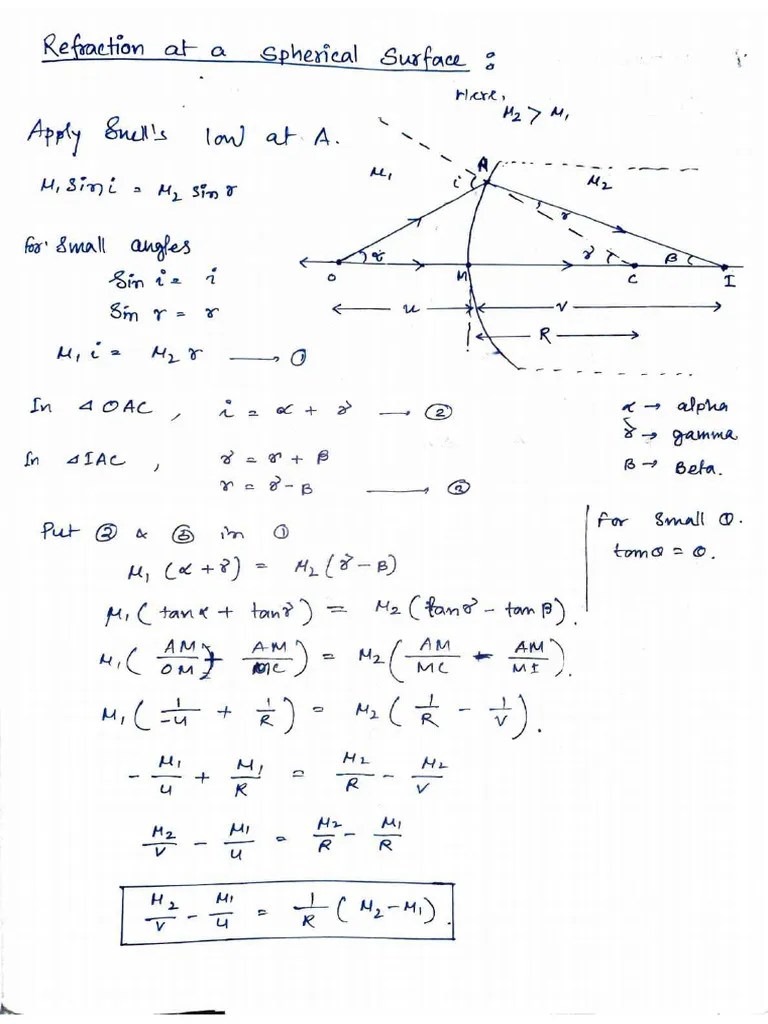 Refraction at a Spherical Surface :
Here,
μ₂ > μ₁
Apply Snell's law at A.
μ₁ sin i = μ₂ sin r
A
μ₁
i
μ₂
r
α
γ
β
O
M
C
I
u
v
R
for small angles
Sin i = i
Sin r = r
μ₁ i = μ₂ r → ①
In △OAC, i = α + γ → ②
In △IAC, γ = r + β
r = γ - β → ③
α → alpha
γ → gamma
β → Beta.
Put ② & ③ in ①
for small θ.
tanθ = θ.
μ₁ (α + γ) = μ₂ (γ - β)
μ₁ (tanα + tanγ) = μ₂ (tanγ - tanβ).
μ₁ (AM/OM + AM/MC) = μ₂ (AM/MC - AM/MI).
μ₁ (1/-u + 1/R) = μ₂ (1/R - 1/v).
- μ₁/u + μ₁/R = μ₂/R - μ₂/v
μ₂/v - μ₁/u = μ₂/R - μ₁/R
μ₂/v - μ₁/u = 1/R (μ₂ - μ₁).